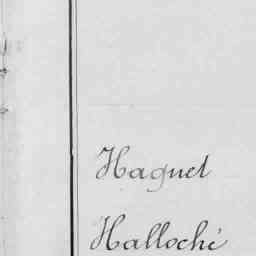 Haguet
Halloché